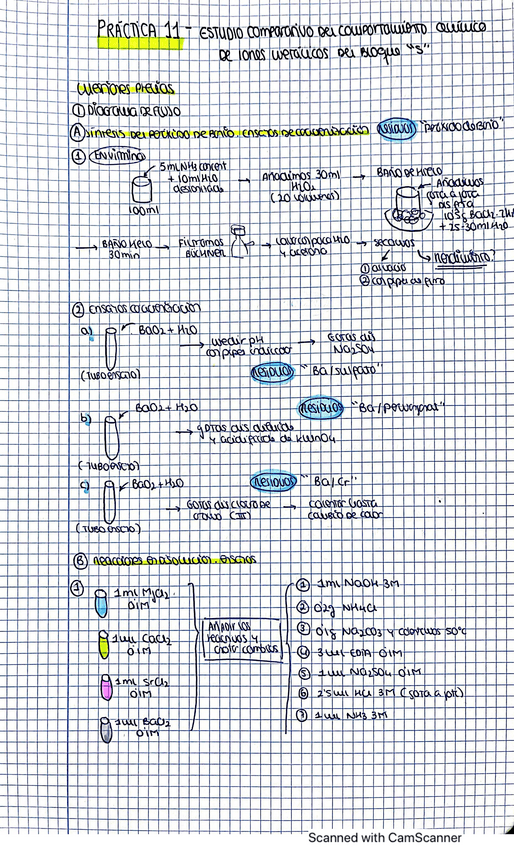 PRÁCTICA 11 - ESTUDIO COMPARATIVO DEL COMPORTAMIENTO QUÍMICO
DE IONES METÁLICOS DEL BLOQUE "S"
CUESTIONES PREVIAS
① DIAGRAMA DE FLUJO
Ⓐ SÍNTESIS DEL PERÓXIDO DE BARIO. ENSAYOS DE CARACTERIZACIÓN RESIDUOS "PERÓXIDO de BARIO"
① EN VITRINA
5mL NH3 concent
+ 10ml H2O
desionizada
100ml
→ AÑADIMOS 30ml
H2O2
(20 volúmenes)
→ BAÑO DE HIELO
AÑADIMOS
gota a gota
10'5g BaCl2·2H2O
+ 25-30ml H2O
→ BAÑO HIELO
30 min
→ FILTRAMOS
BÜCHNER
→ H2O
y acetona
→ secamos
① al vacío
②
RENDIMIENTO?
② ENSAYOS CARACTERIZACIÓN
a) BaO2 + H2O
(TUBO ENSAYO)
→ medir pH
con papel indicador
→ Gotas dis
Na2SO4
RESIDUOS "Ba/sulfato"
b) BaO2 + H2O
(TUBO ENSAYO)
→ gotas dis diluida
y acidificada de KMnO4
RESIDUOS "Ba/permanganat"
c) BaO2 + H2O
(TUBO ENSAYO)
→ Gotas dis cloruro de
cromo (III)
→ calentar hasta
cambio de color
RESIDUOS "Ba/Cr"
Ⓑ REACCIONES EN DISOLUCIÓN. ENSAYOS
① 1ml MgCl2
0'1M
1ml CaCl2
0'1M
1ml SrCl2
0'1M
1ml BaCl2
0'1M
Añadir los
reactivos y
anotar cambios
① 1ml NaOH 3M
② 0'2g NH4Cl
③ 0'1g Na2CO3 y calentamos 50°C
④ 3ml EDTA 0'1M
⑤ 1ml Na2SO4 0'1M
⑥ 2'5ml HCl 3M (gota a gota)
⑦ 1ml NH3 3M
Scanned with CamScanner